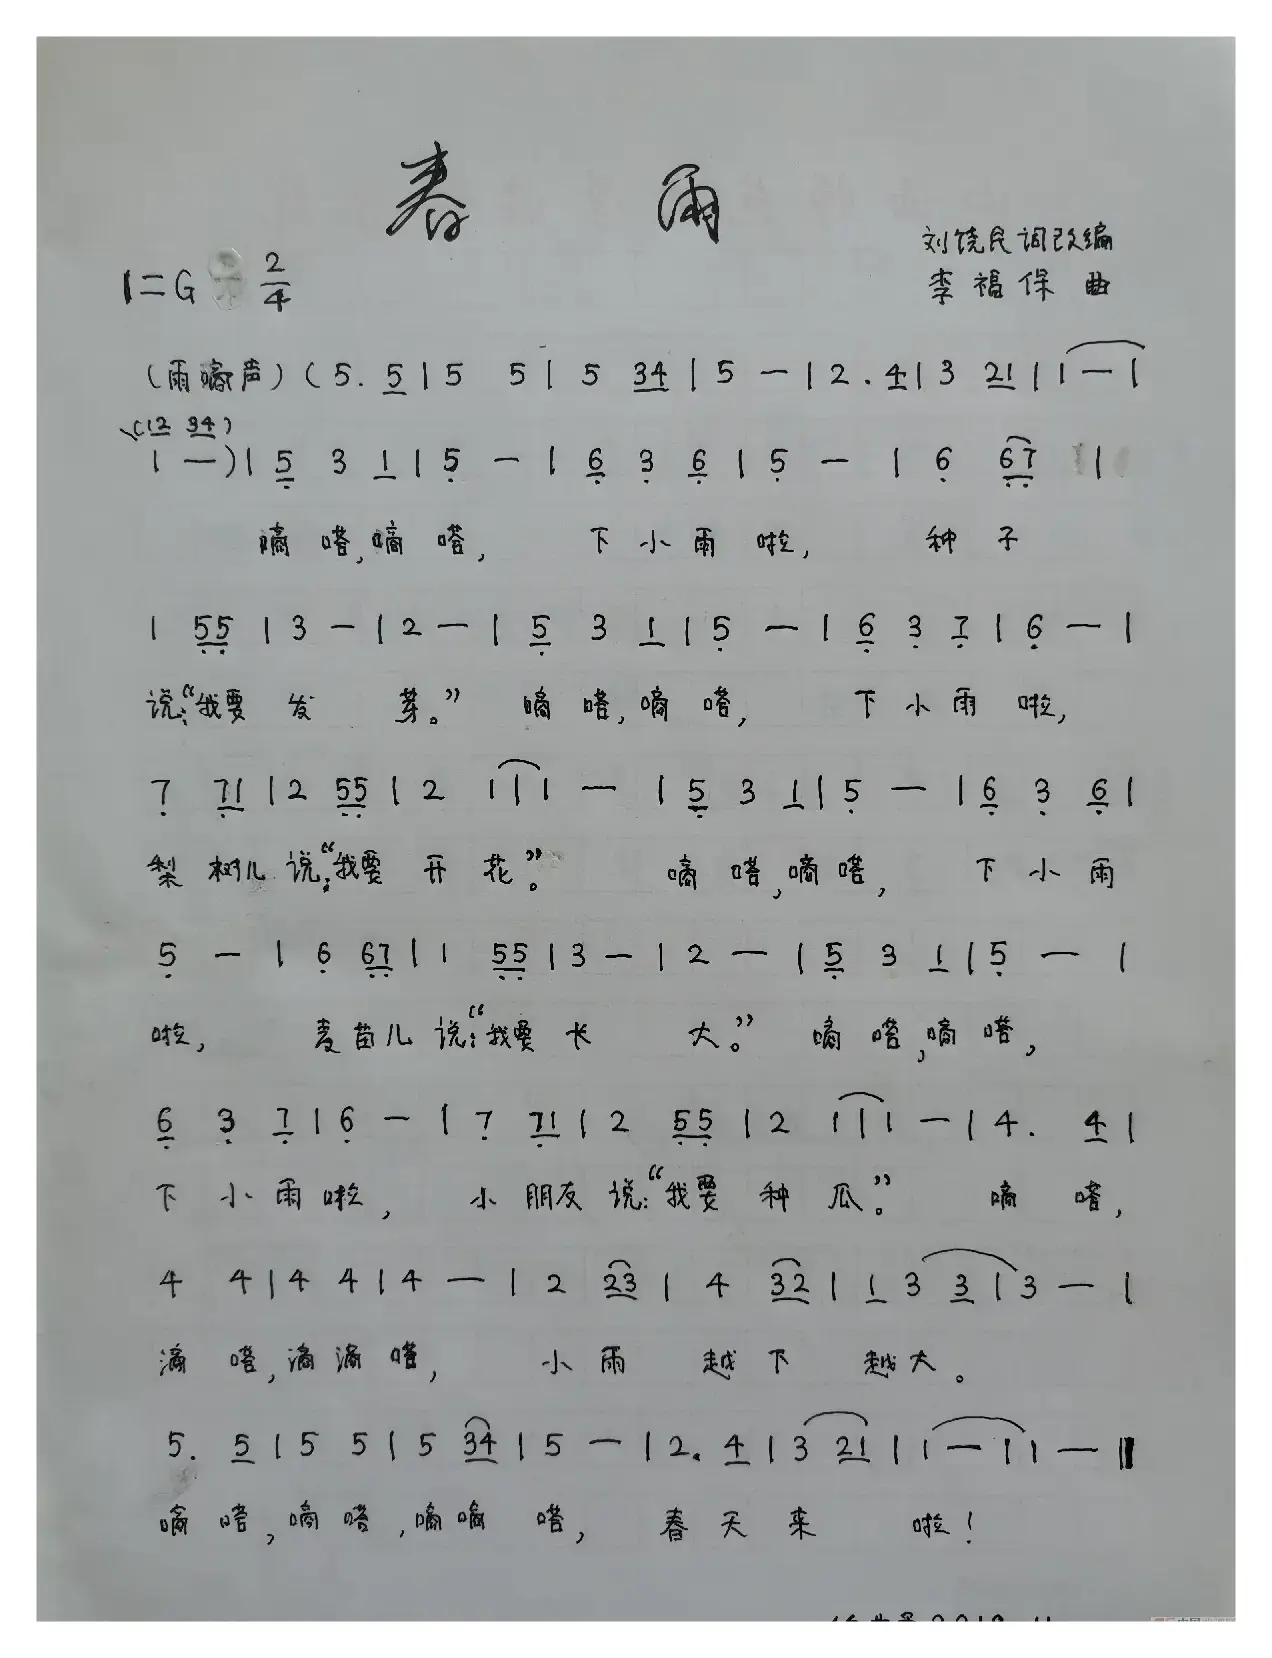 春 雨
刘饶民词改编
1=G 2/4
李福保 曲
(雨嘀声)(5. 5|5 5|5 34|5 —|2. 4|3 21|1 —|
(12 34)
1 —)|5 3 1|5 —|6 3 6|5 —|6 67|
嘀 嗒,嘀 嗒, 下 小 雨 啦, 种 子
1 55|3 —|2 —|5 3 1|5 —|6 3 7|6 —|
说:“我要 发 芽。” 嘀 嗒,嘀 嗒, 下 小 雨 啦,
7 71|2 55|2 1|1 —|5 3 1|5 —|6 3 6|
梨 树儿 说:“我要 开 花。” 嘀 嗒,嘀 嗒, 下 小 雨
5 —|6 67|1 55|3 —|2 —|5 3 1|5 —|
啦, 麦 苗儿 说:“我要 长 大。” 嘀 嗒,嘀 嗒,
6 3 7|6 —|7 71|2 55|2 1|1 —|4. 4|
下 小 雨 啦, 小 朋友 说:“我要 种 瓜。” 嘀 嗒,
4 4|4 4|4 —|2 23|4 32|1 3 3|3 —|
滴 嗒,滴 滴 嗒, 小 雨 越 下 越 大。
5. 5|5 5|5 34|5 —|2. 4|3 21|1 —|1 —‖
嘀 嗒,嘀 嗒,嘀嘀 嗒, 春 天 来 啦!